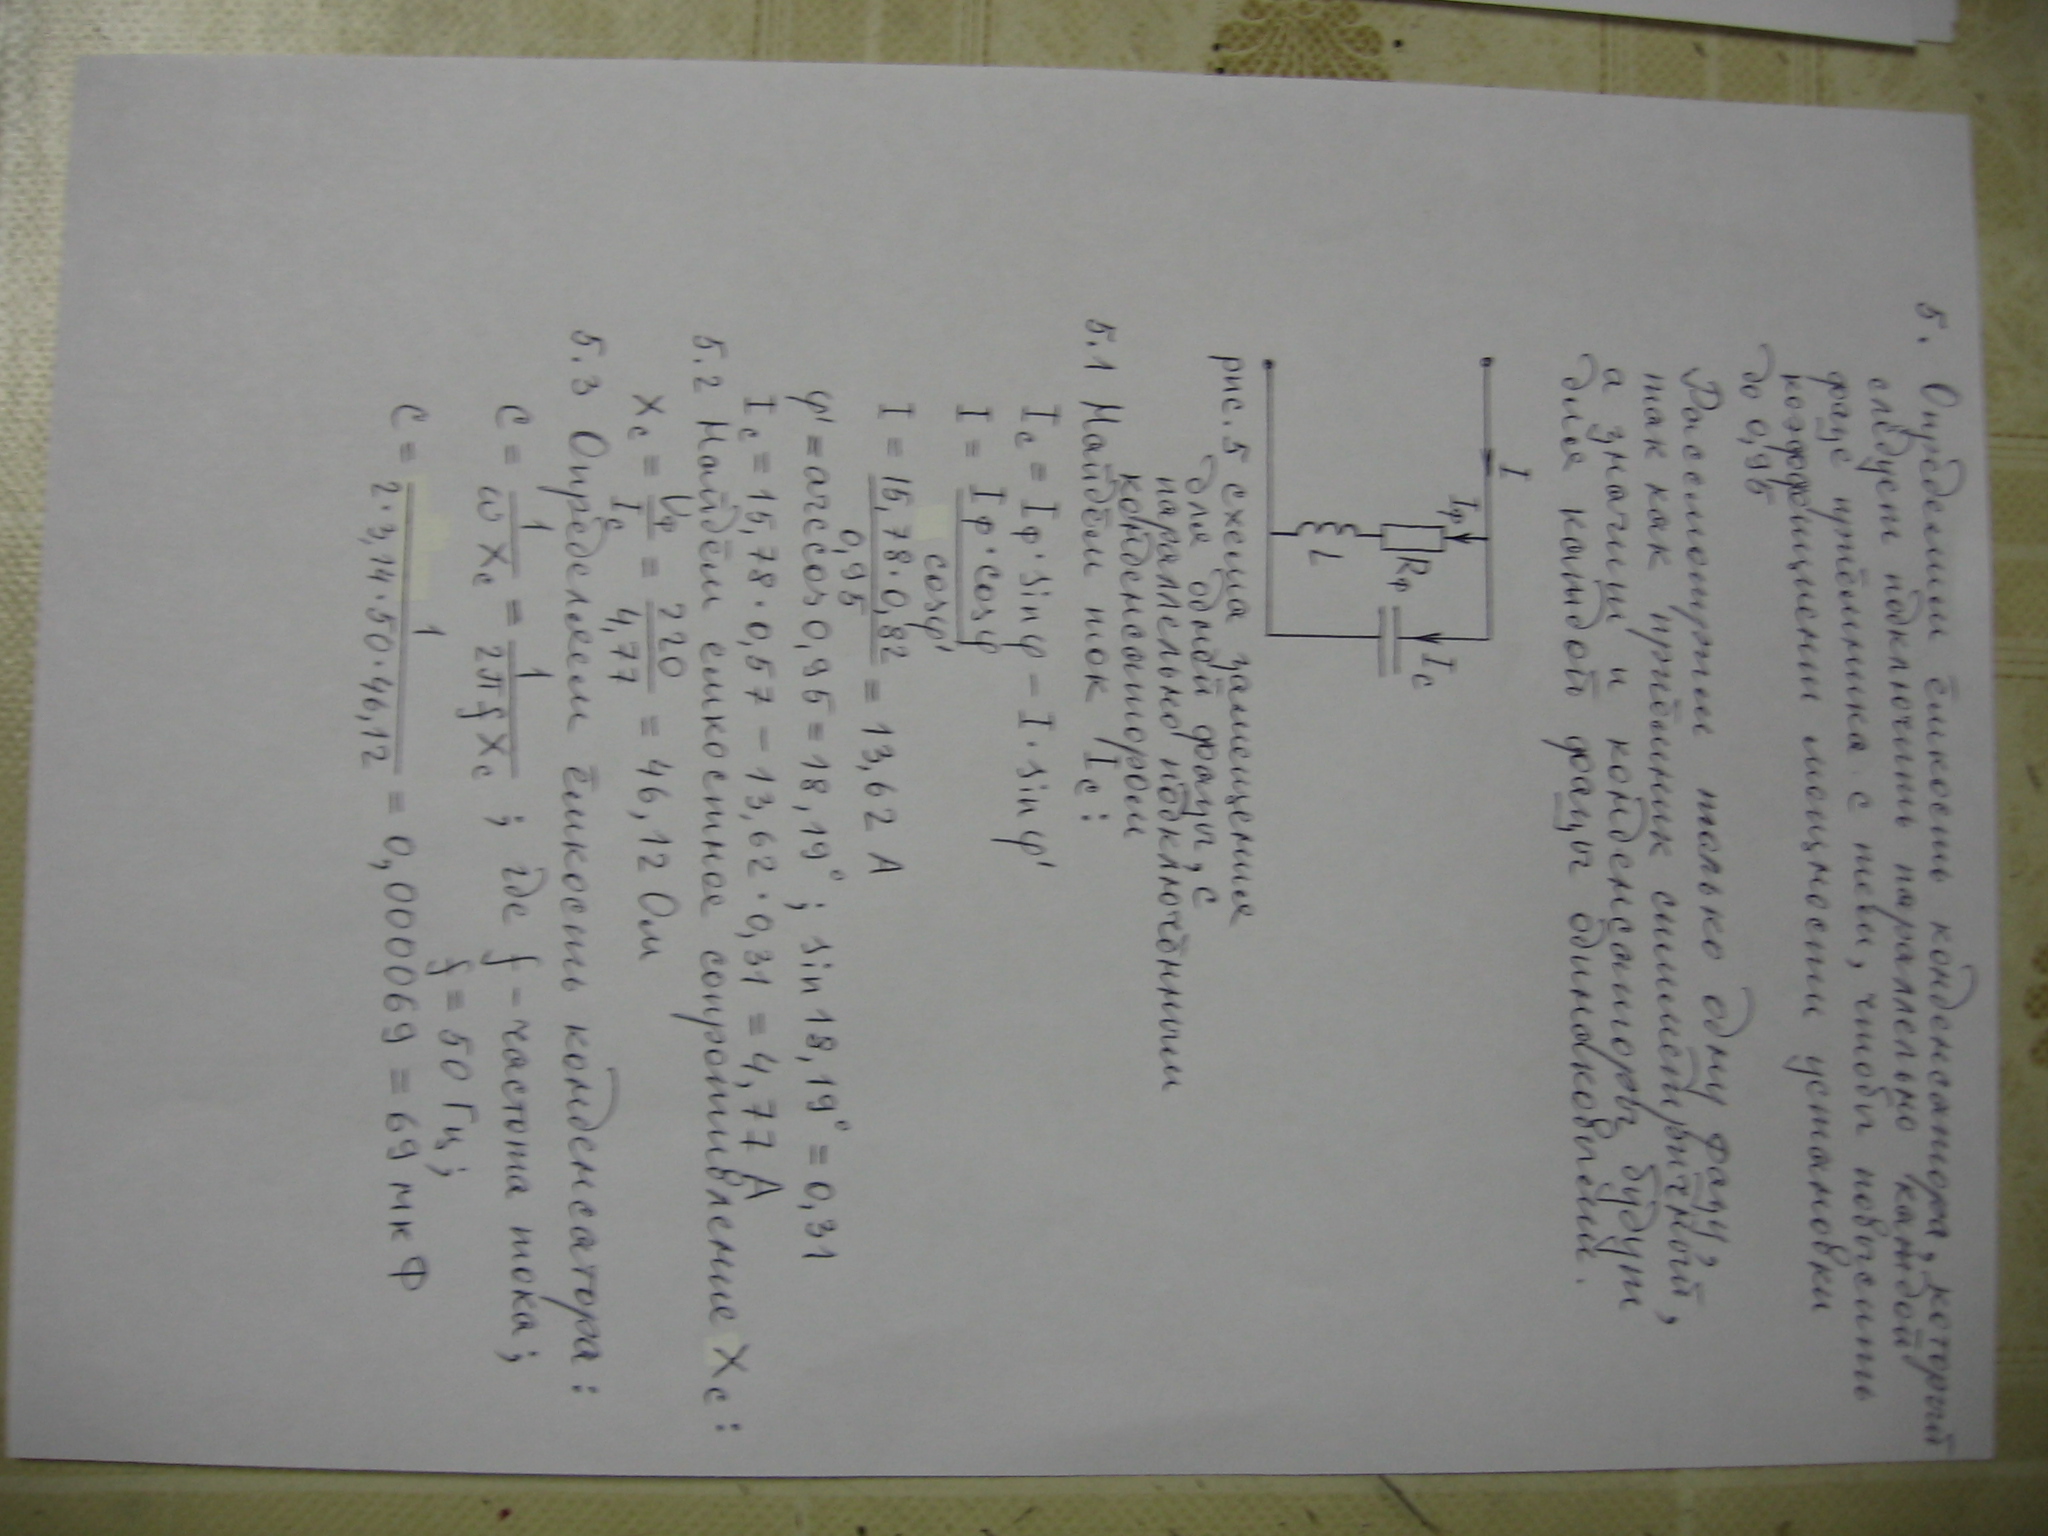 5. Определим ёмкость конденсатора, который
следует подключить параллельно каждой
фазе приёмника с тем, чтобы повысить
коэффициент мощности установки
до 0,95
Рассмотрим только одну фазу,
так как приёмник симметричный,
а значит и конденсаторы будут
для каждой фазы одинаковыми.
I
Iф
Rф
L
Ic
рис. 5 схема замещения
для одной фазы, с
параллельно подключённым
конденсатором
5.1 Найдём ток Ic:
Ic = Iф · sinφ − I · sinφ'
I = Iф · cosφ / cosφ'
I = 15,78 · 0,82 / 0,95 = 13,62 А
φ' = arccos 0,95 = 18,19° ; sin 18,19° = 0,31
Ic = 15,78 · 0,57 − 13,62 · 0,31 = 4,77 А
5.2 Найдём емкостное сопротивление Xc:
Xc = Uф / Ic = 220 / 4,77 = 46,12 Ом
5.3 Определяем ёмкость конденсатора:
C = 1 / ωXc = 1 / 2πfXc ; где f – частота тока;
f = 50 Гц;
C = 1 / 2·3,14·50·46,12 = 0,000069 = 69 мкФ